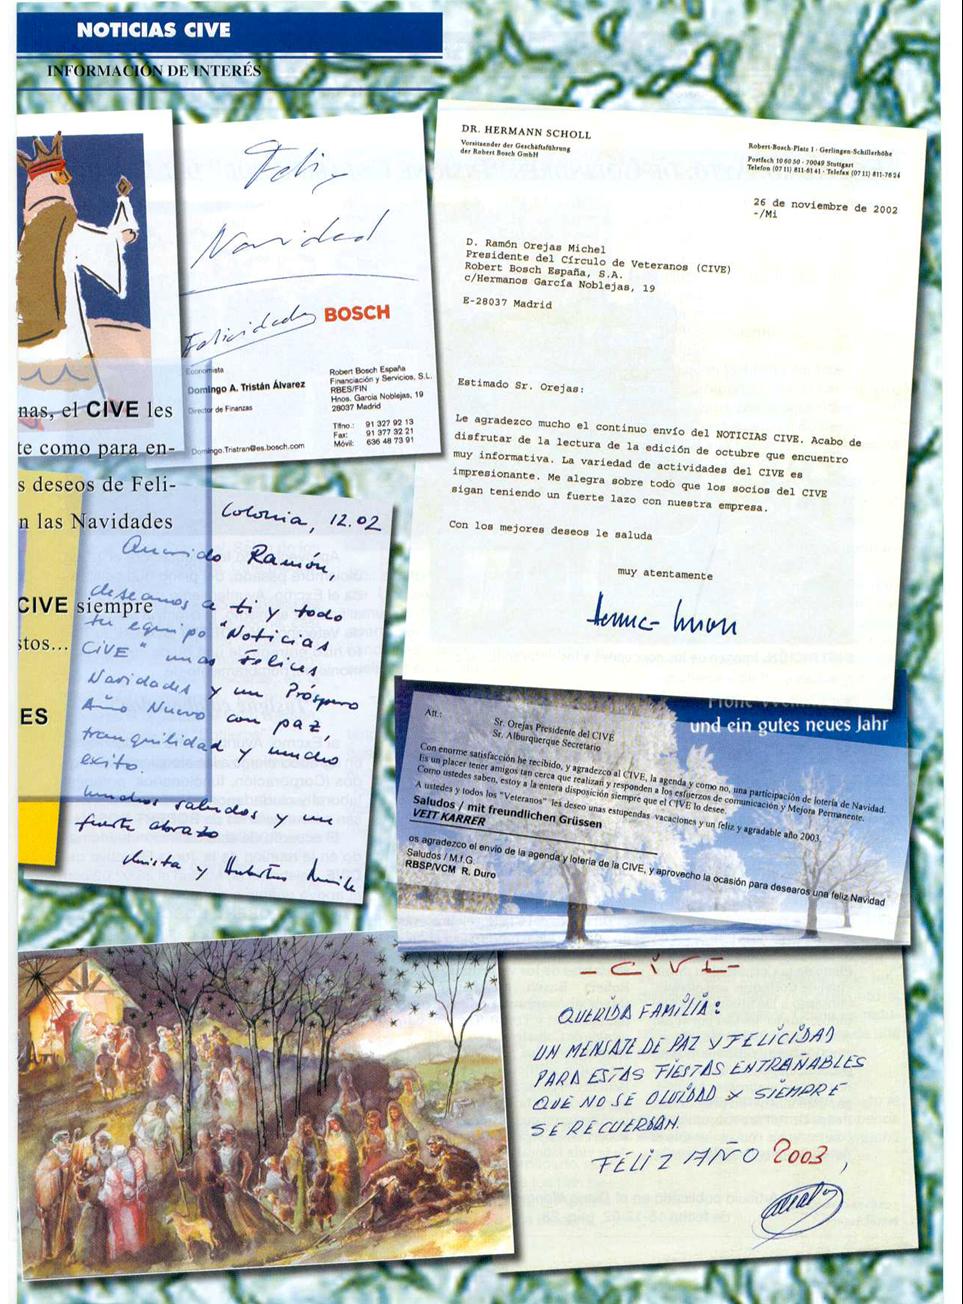 NOTICIAS CIVE
INFORMACIÓN DE INTERÉS
nas, el CIVE les
te como para en-
s deseos de Feli-
n las Navidades
CIVE siempre
stos...
ES
Feliz
Navidad
Felicidades
BOSCH
Economista
Domingo A. Tristán Álvarez
Director de Finanzas
Domingo.Tristran@es.bosch.com
Robert Bosch España
Financiación y Servicios, S.L.
RBES/FIN
Hnos. García Noblejas, 19
28037 Madrid
Tlfno.: 91 327 92 13
Fax: 91 377 32 21
Móvil: 636 48 73 91
DR. HERMANN SCHOLL
Vorsitzender der Geschäftsführung
der Robert Bosch GmbH
Robert-Bosch-Platz 1 · Gerlingen-Schillerhöhe
Postfach 10 60 50 · 70049 Stuttgart
Telefon (07 11) 811-61 41 · Telefax (07 11) 811-76 24
26 de noviembre de 2002
-/Mi
D. Ramón Orejas Michel
Presidente del Círculo de Veteranos (CIVE)
Robert Bosch España, S.A.
c/Hermanos García Noblejas, 19
E-28037 Madrid
Estimado Sr. Orejas:
Le agradezco mucho el continuo envío del NOTICIAS CIVE. Acabo de
disfrutar de la lectura de la edición de octubre que encuentro
muy informativa. La variedad de actividades del CIVE es
impresionante. Me alegra sobre todo que los socios del CIVE
sigan teniendo un fuerte lazo con nuestra empresa.
Con los mejores deseos le saluda
muy atentamente
Colonia, 12.02
Querido Ramón,
deseamos a ti y todo
tu equipo "Noticia
CIVE" unas Felices
Navidades y un Próspero
Año Nuevo con paz,
tranquilidad y mucho
exito.
Muchos saludos y un
fuerte abrazo
und ein gutes neues Jahr
Att.: Sr. Orejas Presidente del CIVE
Sr. Alburquerque Secretario
Con enorme satisfacción he recibido, y agradezco al CIVE, la agenda y como no, una participación de lotería de Navidad.
Es un placer tener amigos tan cerca que realizan y responden a los esfuerzos de comunicación y Mejora Permanente.
Como ustedes saben, estoy a la entera disposición siempre que el CIVE lo desee.
A ustedes y todos los "Veteranos" les deseo unas estupendas vacaciones y un feliz y agradable año 2003.
Saludos / mit freundlichen Grüssen
VEIT KARRER
os agradezco el envío de la agenda y lotería de la CIVE, y aprovecho la ocasión para desearos una feliz Navidad
Saludos / M.f.G.
RBSP/VCM R. Duro
- CIVE -
QUERIDA FAMILIA:
UN MENSAJE DE PAZ Y FELICIDAD
PARA ESTAS FIESTAS ENTRAÑABLES
QUE NO SE OLVIDAD Y SIEMPRE
SE RECUERDAN.
FELIZ AÑO 2003,